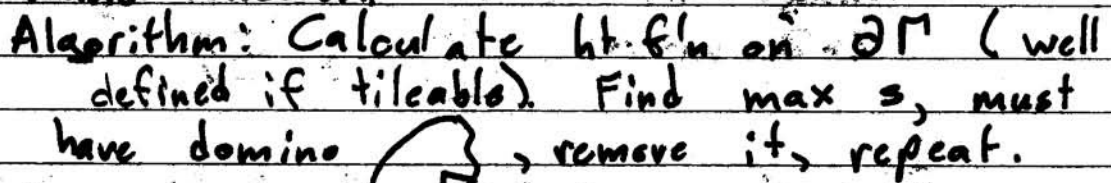 Algorithm: Calculate ht. f'n on ∂Γ (well
defined if tileable). Find max s, must
have domino , remove it, repeat.